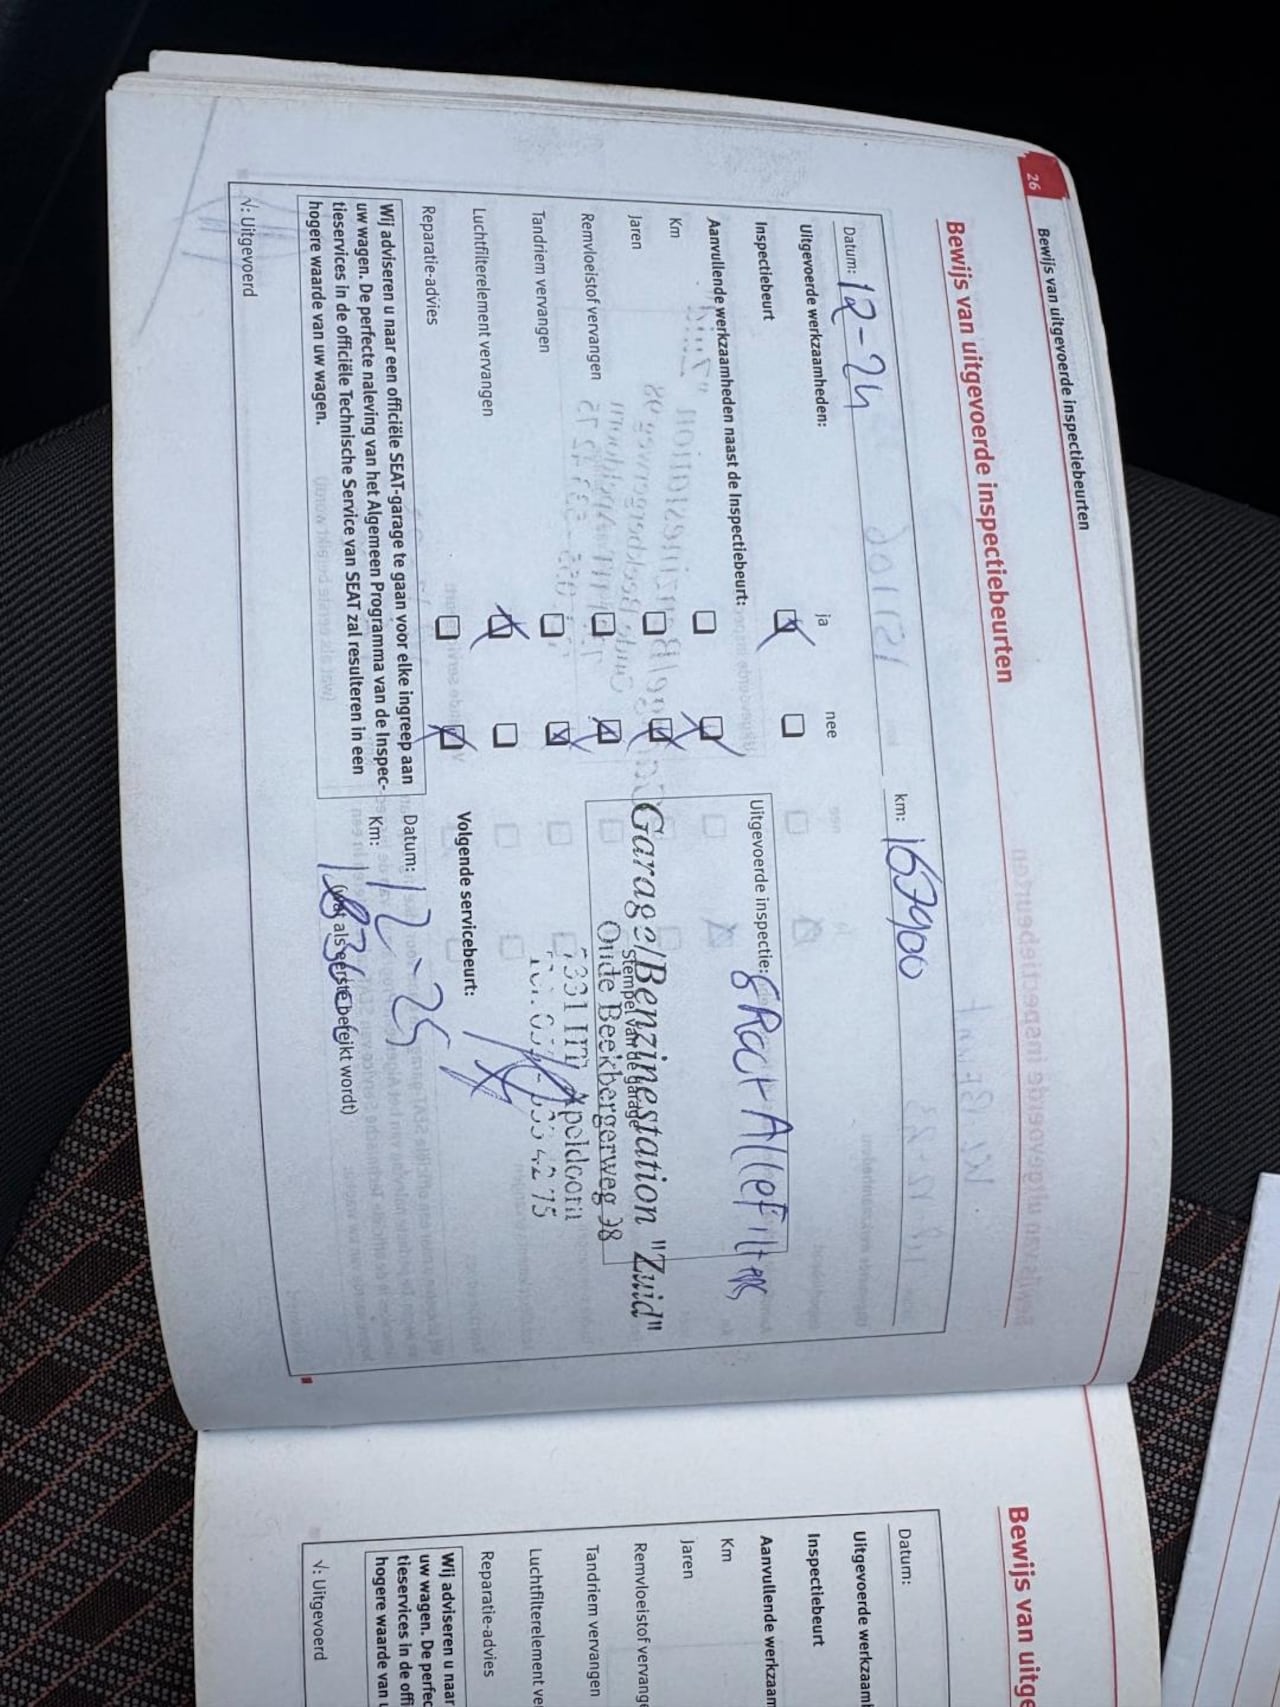 26
Bewijs van uitgevoerde inspectiebeurten
Bewijs van uitgevoerde inspectiebeurten
Datum: 12-24
km: 167900
Uitgevoerde werkzaamheden:
ja
nee
Inspectiebeurt
Uitgevoerde inspectie:
Aanvullende werkzaamheden naast de Inspectiebeurt:
Km
Jaren
Remvloeistof vervangen
Tandriem vervangen
Luchtfilterelement vervangen
Reparatie-advies
Garage/Benzinestation "Zuid"
Stempel van de garage
Oude Beekbergerweg 38
Apeldoorn
Volgende servicebeurt:
Datum: 12-25
Km:
(wat als eerste bereikt wordt)
Wij adviseren u naar een officiële SEAT-garage te gaan voor elke ingreep aan
uw wagen. De perfecte naleving van het Algemeen Programma van de Inspec-
tieservices in de officiële Technische Service van SEAT zal resulteren in een
hogere waarde van uw wagen.
√: Uitgevoerd
Bewijs van uitge
Datum:
Uitgevoerde werkzaam
Inspectiebeurt
Aanvullende werkzaam
Km
Jaren
Remvloeistof vervange
Tandriem vervangen
Luchtfilterelement ve
Reparatie-advies
Wij adviseren u naar
uw wagen. De perfec
tieservices in de offi
hogere waarde van u
√: Uitgevoerd